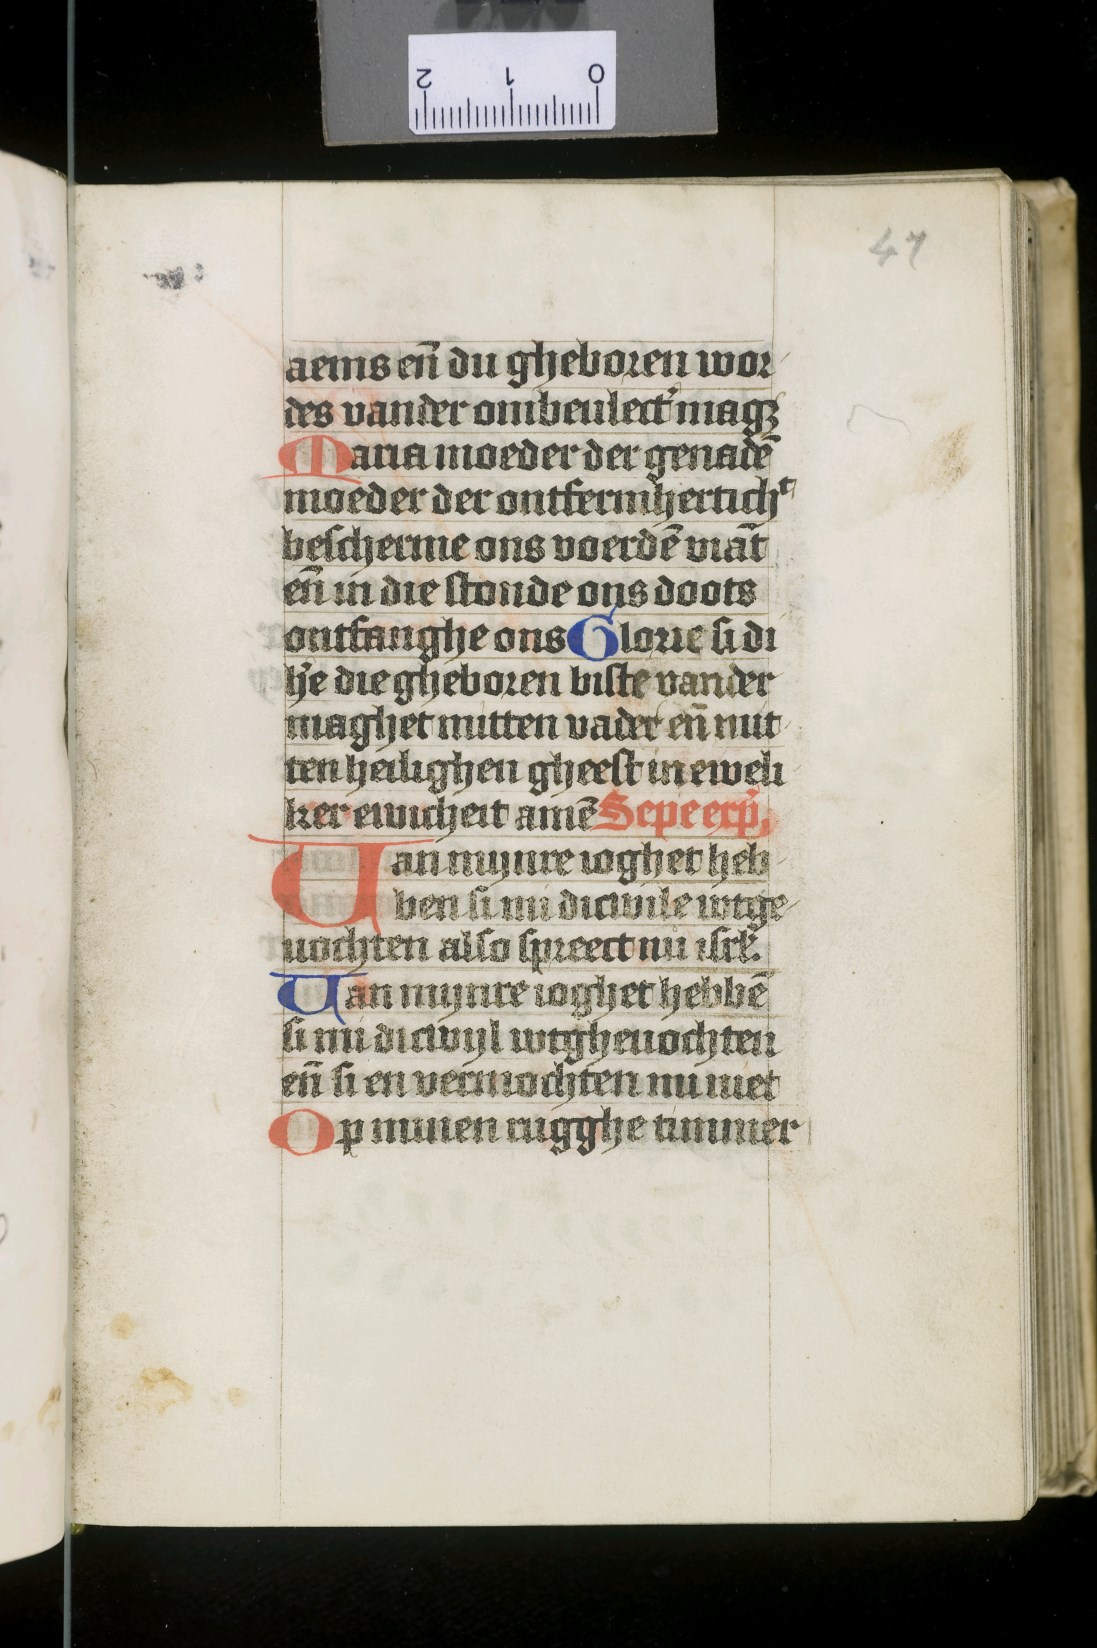 47
aems en̄ du gheboren wor
des vander ombeulect' magȝ
Maria moeder der genadē
moeder der ontfermhertichᵗ
bescherme ons voerdē viāt
en̄ in die stonde ons doots
ontfanghe ons Glorie si di
h'e die gheboren biste vander
maghet mitten vader en̄ mit
ten heilighen gheest in eweli
ker ewicheit amē Sepe exp̄
Van mijnre ioghet heb
ben si mi dicwile wtge
uochten also spreect nu isrl'.
Van mijnre ioghet hebbē
si mi dicwijl wtgheuochten
en̄ si en vermochten mi niet
Op minen rugghe timmer